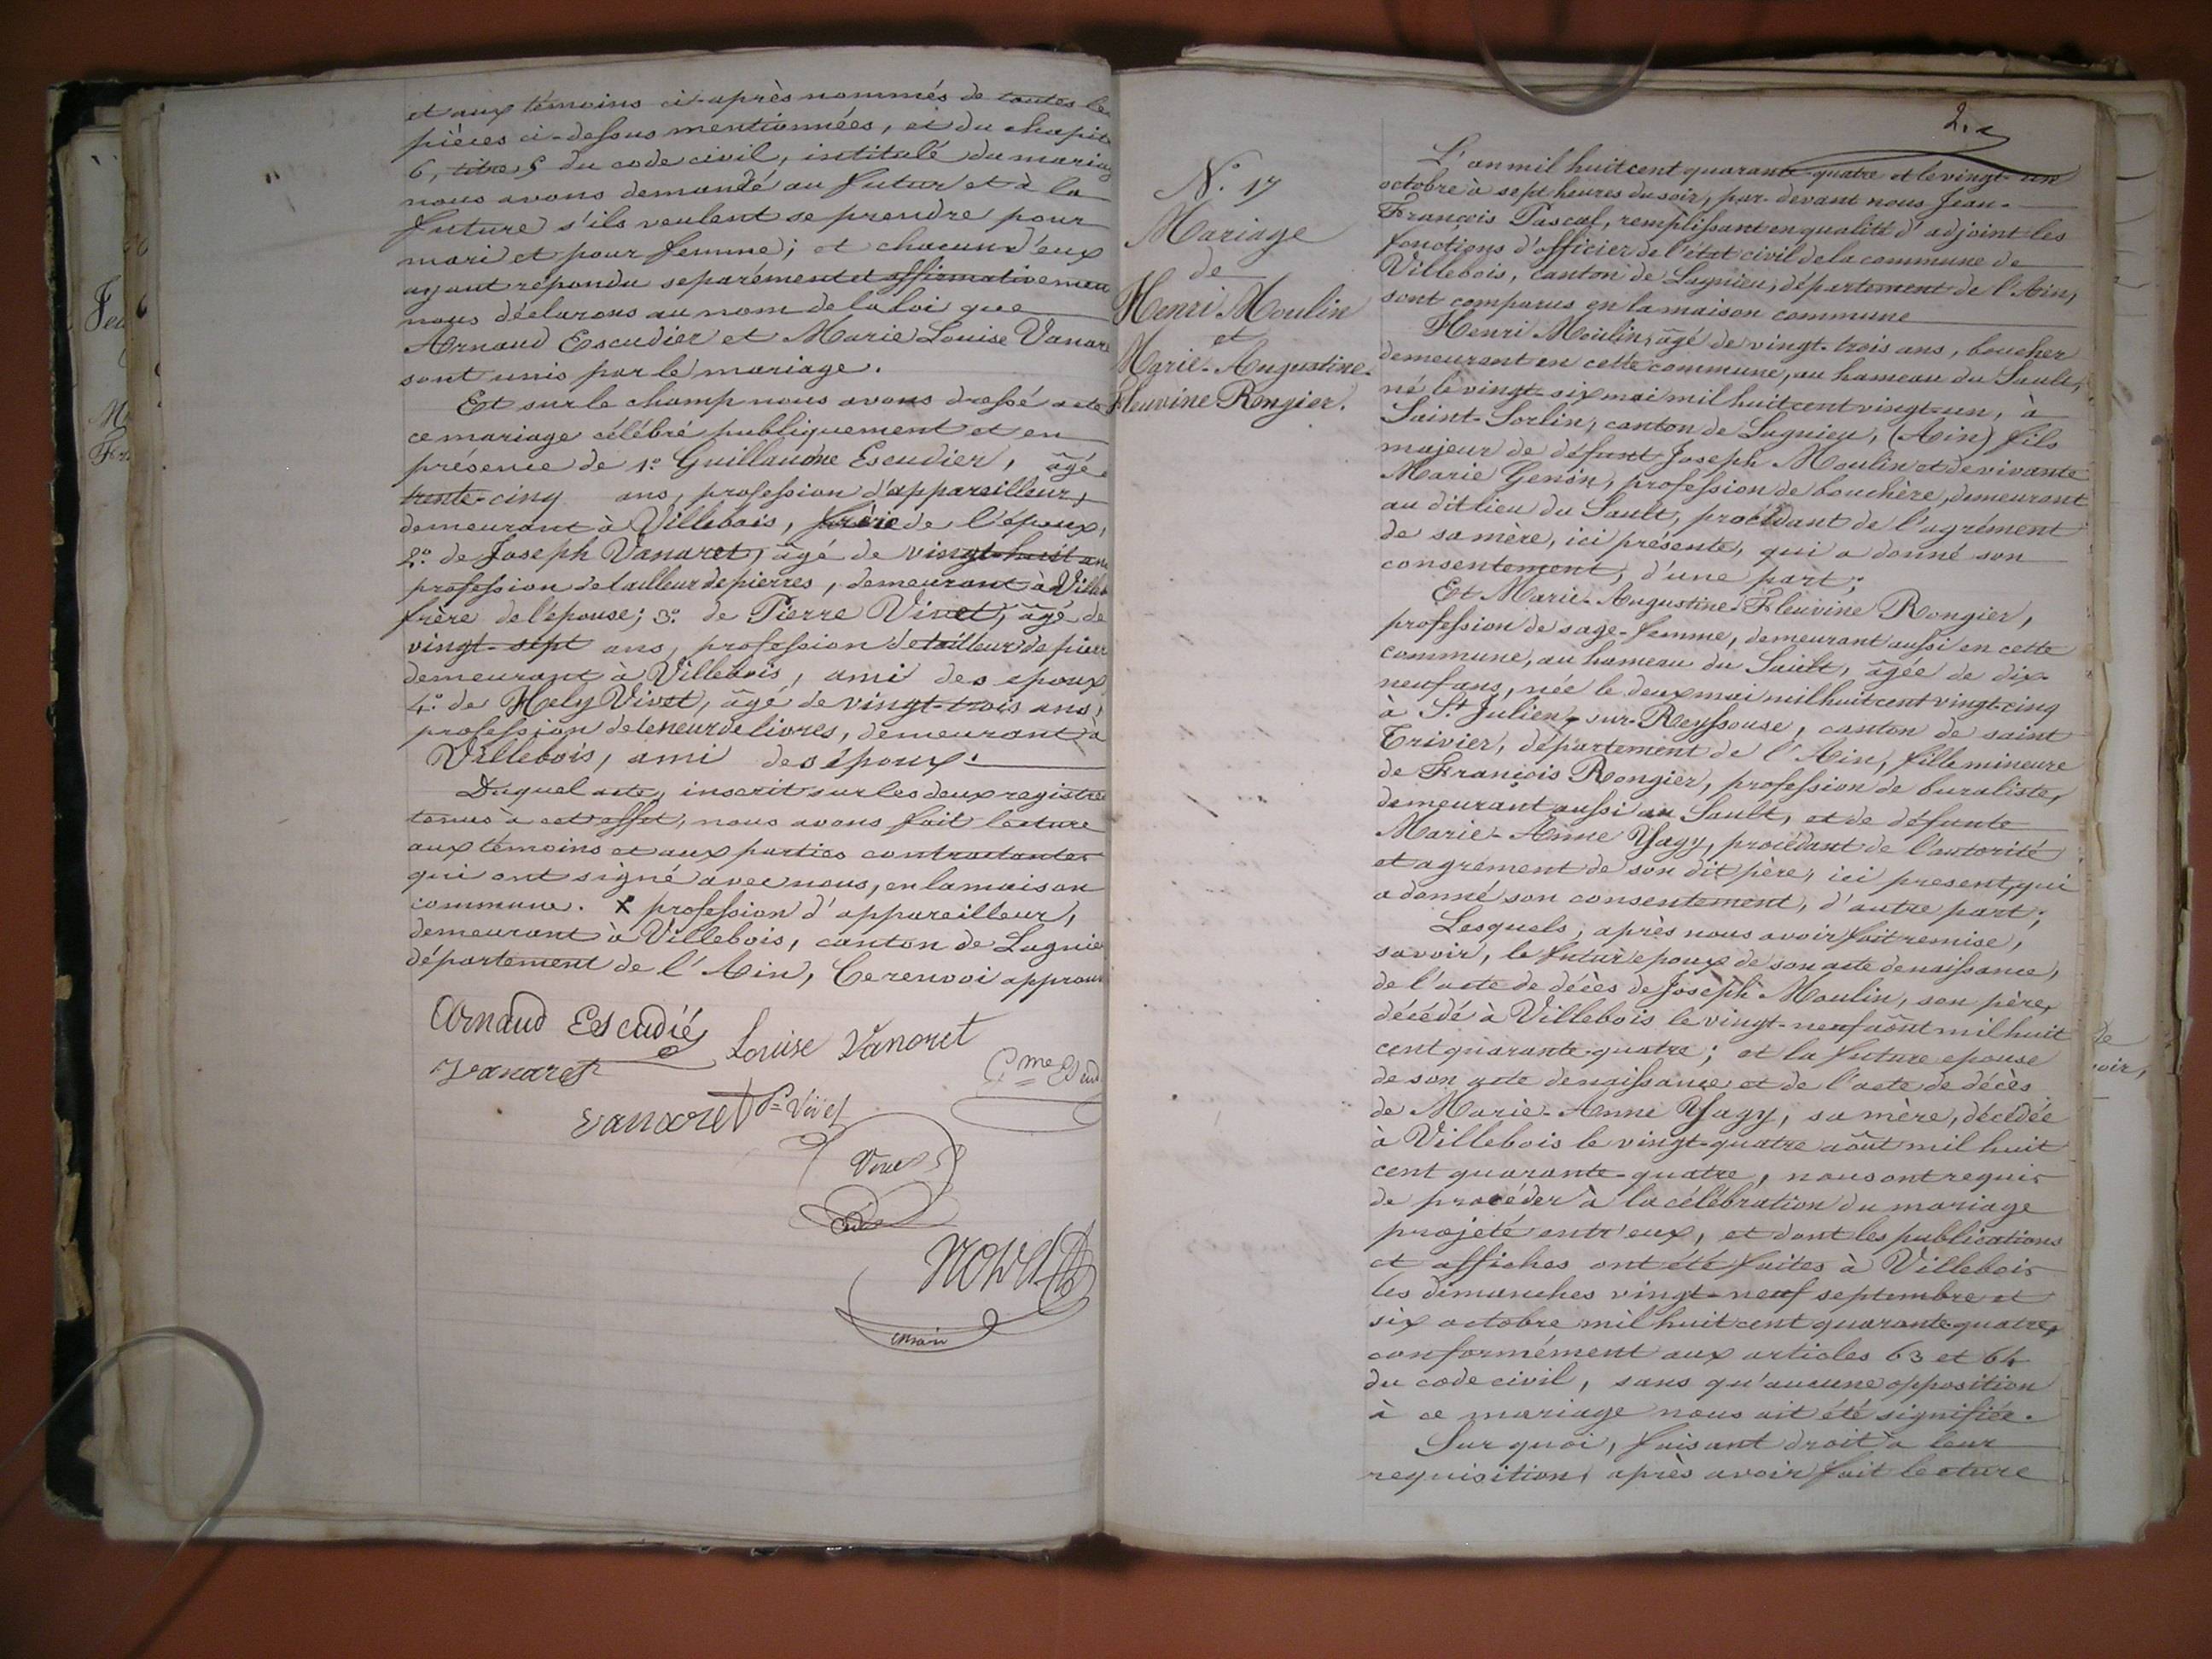 et aux témoins ci-après nommés de toutes le
pièces ci-dessus mentionnées, et du chapit
6, titre 5 du code civil, intitulé du mariag
nous avons demandé au futur et à la
future s'ils veulent se prendre pour
mari et pour femme; et chacun d'eux
ayant répondu separément et affirmativemen
nous déclarons au nom de la loi que
Arnaud Escudier et Marie Louise Vanar
sont unis par le mariage.
Et sur le champ nous avons dressé acte
ce mariage célébré publiquement et en
présence de 1.º Guillaume Escudier, âgé
trente-cinq ans, profession d'appareilleur,
demeurant à Villebois, frère de l'époux,
2.º de Joseph Vanaret, âgé de vingt-huit ans
profession de tailleur de pierres, demeurant à Villeb
frère de l'épouse; 3.º de Pierre Vivet, âgé de
vingt-sept ans, profession de tailleur de pierr
demeurant à Villebois, ami des epoux
4.º de Hely Vivet, âgé de vingt-trois ans,
profession de teneur de livres, demeurant à
Villebois, ami des époux.
Duquel acte, inscrit sur les deux registre
tenus à cet effet, nous avons fait lecture
aux témoins et aux parties contractantes
qui ont signé avec nous, en la maison
commune. X profession d'appareilleur,
demeurant à Villebois, canton de Lagnie
département de l'Ain, Ce renvoi approuv
Arnaud Escudié
Louise Vanoret
Vanaret
G.me Escud
Vanoret
P.re Vivet
Vivet
2.
N.º 17
Mariage
de
Henri Moulin
et
Marie-Augustine-
Fleuvine Rongier.
L'an mil huit cent quarante-quatre et le vingt-un
octobre à sept heures du soir, par-devant nous Jean-
François Pascal, remplissant en qualité d'adjoint les
fonctions d'officier de l'état civil de la commune de
Villebois, canton de Lagnieu, département de l'Ain,
sont comparus en la maison commune
Henri Moulin, âgé de vingt-trois ans, boucher
demeurant en cette commune, au hameau du Sault,
né le vingt-six mai mil huit cent vingt-un, à
Saint-Sorlin, canton de Lagnieu, (Ain) fils
majeur de défunt Joseph Moulin et de vivante
Marie Genin, profession de bouchère, demeurant
au dit lieu du Sault, procédant de l'agrément
de sa mère, ici présente, qui a donné son
consentement, d'une part;
Et Marie-Augustine-Fleuvine Rongier,
profession de sage-femme, demeurant aussi en cette
commune, au hameau du Sault, âgée de dix-
neuf ans, née le deux mai mil huit cent vingt-cinq
à S.t Julien-sur-Reyssouse, canton de saint
Trivier, département de l'Ain, fille mineure
de François Rongier, profession de buraliste,
demeurant aussi au Sault, et de défunte
Marie-Anne Yagy, procédant de l'autorité
et agrément de son dit père, ici present, qui
a donné son consentement, d'autre part;
Lesquels, après nous avoir fait remise,
savoir, le futur epoux de son acte de naissance,
de l'acte de décès de Joseph Moulin, son père,
décédé à Villebois le vingt-neuf août mil huit
cent quarante-quatre; et la future epouse
de son acte de naissance et de l'acte de décès
de Marie-Anne Yagy, sa mère, décédée
à Villebois le vingt-quatre août mil huit
cent quarante-quatre, nous ont requis
de procéder à la célébration du mariage
projeté entr'eux, et dont les publications
et affiches ont été faites à Villebois
les dimanches vingt-neuf septembre et
six octobre mil huit cent quarante-quatre,
conformément aux articles 63 et 64
du code civil, sans qu'aucune opposition
à ce mariage nous ait été signifiée.
Sur quoi, faisant droit à leur
requisition, après avoir fait lecture